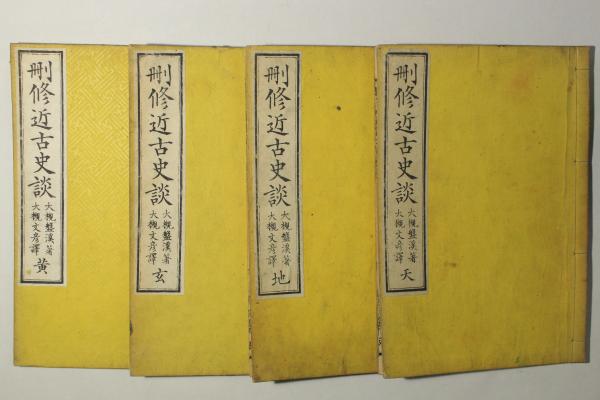 刪修近古史談
大槻磐溪著
大槻文彦譯
天
刪修近古史談
大槻磐溪著
大槻文彦譯
地
刪修近古史談
大槻磐溪著
大槻文彦譯
玄
刪修近古史談
大槻磐溪著
大槻文彦譯
黄